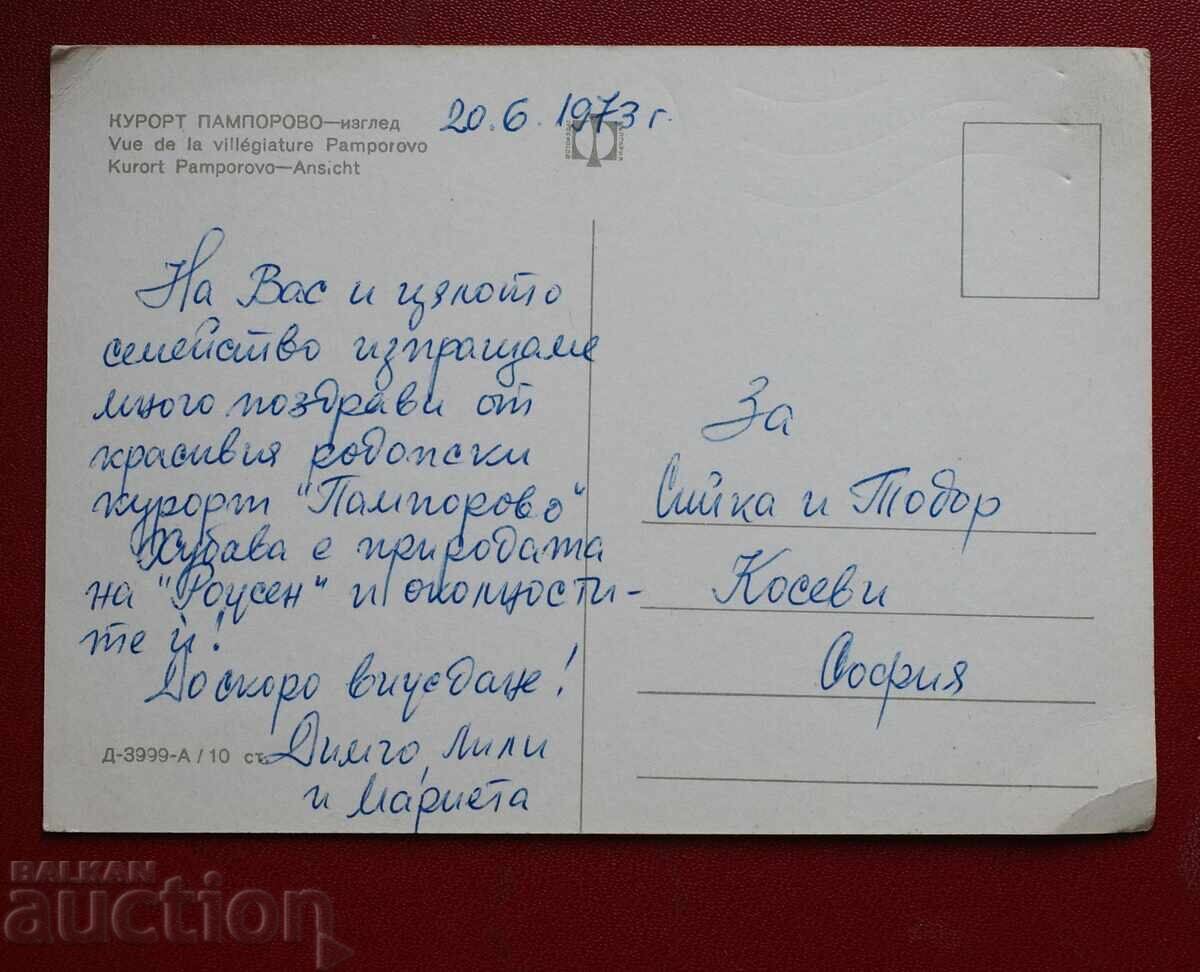 КУРОРТ ПАМПОРОВО—изглед
Vue de la villégiature Pamporovo
Kurort Pamporovo—Ansicht
20.6.1973 г.
На Вас и цялото
семейство изпращаме
много поздрави от
красивия родопски
курорт "Пампорово"
Хубава е природата
на "Роусен" и околности-
те ѝ!
Доскоро виждане!
Димчо, Лили
и Мариета
Д-3999-А / 10 ст.
За
Сийка и Тодор
Косеви
София
BALKAN
auction